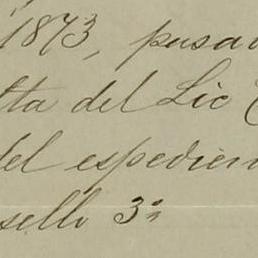 1873, pasa
lta del Lic
del espedien
sello 3º